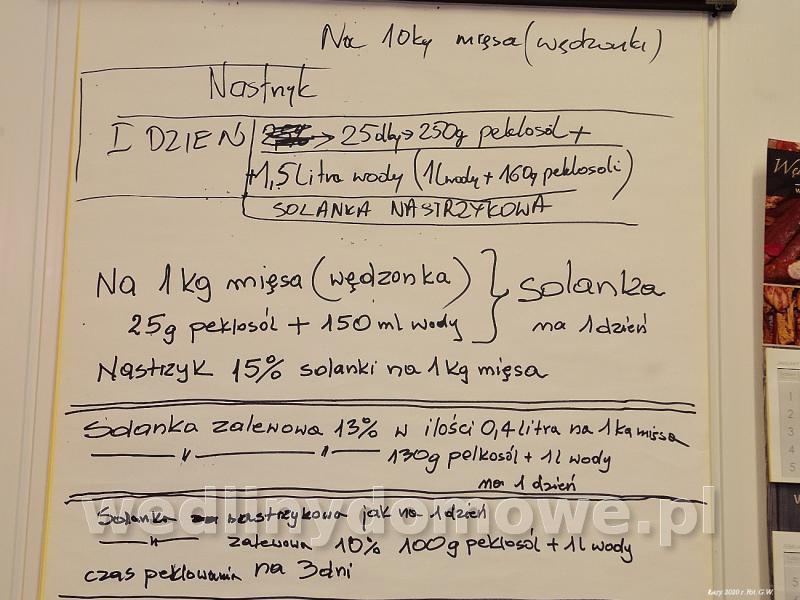 Na 10kg mięsa (wędzonki)
Nastryk
I DZIEŃ
→ 25dkg → 250g peklosól +
+1,5 Litra wody (1l wody + 160g peklosoli)
SOLANKA NASTRZYKOWA
Na 1kg mięsa (wędzonka)
25g peklosól + 150 ml wody
solanka
na 1 dzień
Nastrzyk 15% solanki na 1kg mięsa
Solanka zalewowa 13% w ilości 0,4 litra na 1kg mięsa
—— " —— " —— 130g pelkosól + 1l wody
na 1 dzień
Solanka nastrzykowa jak na 1 dzień
—— " —— zalewowa 10% 100g peklosól + 1l wody
czas peklowania na 3 dni
wedlinydomowe.pl
Łazy 2020 r. Fot. G.W.